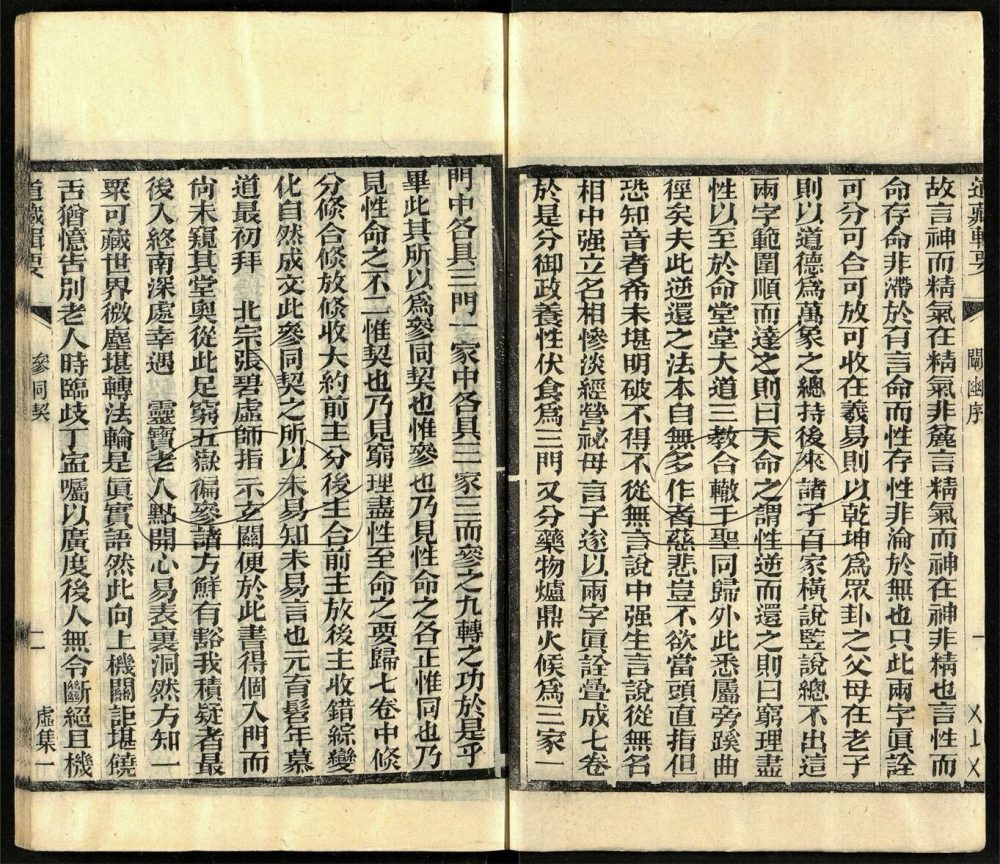 道藏輯要
闡幽序
一
故言神而精氣在精氣非麁言精氣而神在神非精也言性而
命存命非滯於有言命而性存性非淪於無也只此兩字眞詮
可分可合可放可收在羲易則以乾坤爲眾卦之父母在老子
則以道德爲萬象之總持後來諸子百家橫說竪說總不出這
兩字範圍順而達之則曰天命之謂性逆而還之則曰窮理盡
性以至於命堂堂大道三教合轍千聖同歸外此悉屬旁蹊曲
徑矣夫此逆還之法本自無多作者慈悲豈不欲當頭直指但
恐知音者希未堪明破不得不從無言說中强生言說從無名
相中强立名相慘淡經營祕母言子遂以兩字眞詮疊成七卷
於是分御政養性伏食爲三門又分藥物爐鼎火候爲三家一
門中各具三門一家中各具三家三而參之九轉之功於是乎
畢此其所以爲參同契也惟參也乃見性命之各正惟同也乃
見性命之不二惟契也乃見窮理盡性至命之要歸七卷中條
分條合條放條收大約前主分後主合前主放後主收錯綜變
化自然成文此參同契之所以未易知未易言也元育髫年慕
道最初拜 北宗張碧虛師指示玄關便於此書得個入門而
尙未窺其堂奧從此足窮五嶽徧叅諸方鮮有豁我積疑者最
後入終南深處幸遇 靈寶老人點開心易表裏洞然方知一
粟可藏世界微塵堪轉法輪是眞實語然此向上機關詎堪饒
舌猶憶告別老人時臨歧丁寍囑以廣度後人無令斷絕且機
道藏輯要
參同契
二
虛集一